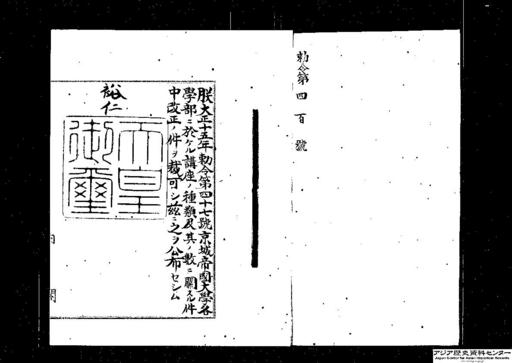 勅令第四百號
朕大正十五年勅令第四十七號京城帝國大學各
學部ニ於ケル講座ノ種類及其ノ數ニ關スル件
中改正ノ件ヲ裁可シ茲ニ之ヲ公布セシム
裕仁
天皇
御璽
内閣
アジア歴史資料センター
Japan Center for Asian Historical Records